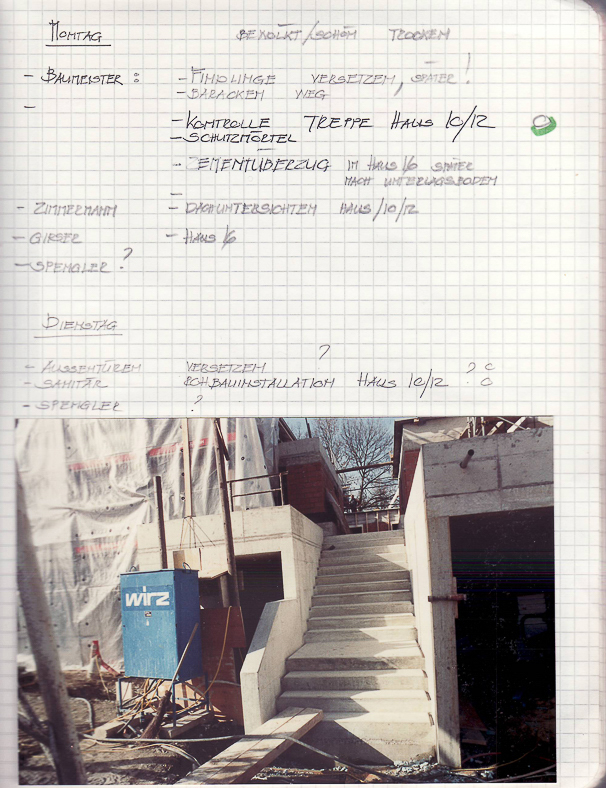 MONTAG BEWÖLKT/SCHÖN TROCKEN
- BAUMEISTER: - FINDLINGE VERSETZEN, SPÄTER!
- BARACKEN WEG
-
- KONTROLLE TREPPE HAUS 10/12
- SCHUTZMÖRTEL
- ZEMENTÜBERZUG IM HAUS 16 SPÄTER
NACH UNTERLAGSBODEN
- ZIMMERMANN - DACHUNTERSICHTEN HAUS/10/12
- GIPSER - HAUS 16
- SPENGLER ?
DIENSTAG
?
- AUSSENTÜREN VERSETZEN ?
- SANITÄR HAUS 10/12
- SPENGLER ?
wirz